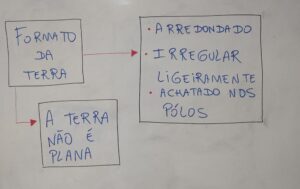 FORMATO
DA
TERRA
• ARREDONDADO
• IRREGULAR
LIGEIRAMENTE
• ACHATADO NOS
PÓLOS
A TERRA
NÃO É
PLANA